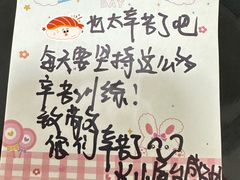 DAY
也太辛苦了吧
每天要坚持这么多
辛苦训练！
致敬
他们辛苦了？？